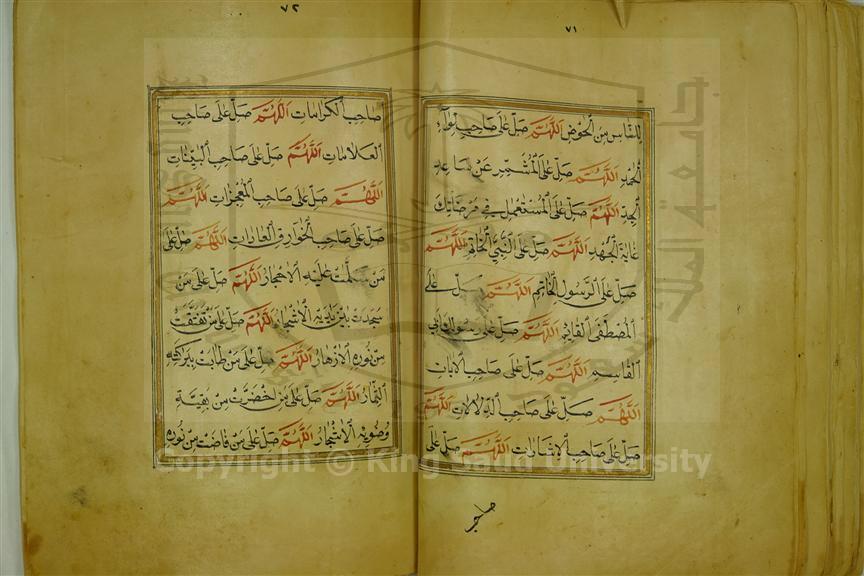 ٧١
للناس من الحوض اللهم صل على صاحب لواء
الحمد اللهم صل على المشمر عن ساعد
الجد اللهم صل على المستعمل في مرضاتك
غاية الجهد اللهم صل على النبي الخاتم اللهم
صل على الرسول الخاتم اللهم صل على
المصطفى القائم اللهم صل على رسولك أبي
القاسم اللهم صل على صاحب الآيات
اللهم صل على صاحب الدلالات اللهم
صل على صاحب الإشارات اللهم صل على
صاحب
٧٢
صاحب الكرامات اللهم صل على صاحب
العلامات اللهم صل على صاحب البينات
اللهم صل على صاحب المعجزات اللهم
صل على صاحب الخوارق العادات اللهم صل على
من سلمت عليه الأحجار اللهم صل على من
سجدت بين يديه الأشجار اللهم صل على من تفتقت
من نوره الأزهار اللهم صل على من طابت ببركته
الثمار اللهم صل على من اخضرت من بقية
وضوئه الأشجار اللهم صل على من فاضت من نوره
Copyright © King Saud University